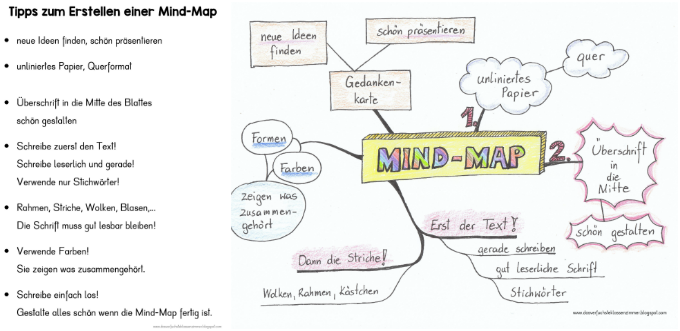 Tipps zum Erstellen einer Mind-Map
neue Ideen finden, schön präsentieren
unliniertes Papier, Querformat
Überschrift in die Mitte des Blattes
schön gestalten
Schreibe zuerst den Text!
Schreibe leserlich und gerade!
Verwende nur Stichwörter!
Rahmen, Striche, Wolken, Blasen,...
Die Schrift muss gut lesbar bleiben!
Verwende Farben!
Sie zeigen was zusammengehört.
Schreibe einfach los!
Gestalte alles schön wenn die Mind-Map fertig ist.
neue Ideen
finden
schön präsentieren
Gedanken-
karte
unliniertes
Papier
quer
1.
MIND-MAP
2.
Überschrift
in die
Mitte
schön gestalten
Formen
Farben
zeigen was
zusammen-
gehört
Erst der Text!
gerade schreiben
gut leserliche Schrift
Stichwörter
Dann die Striche!
Wolken, Rahmen, Kästchen